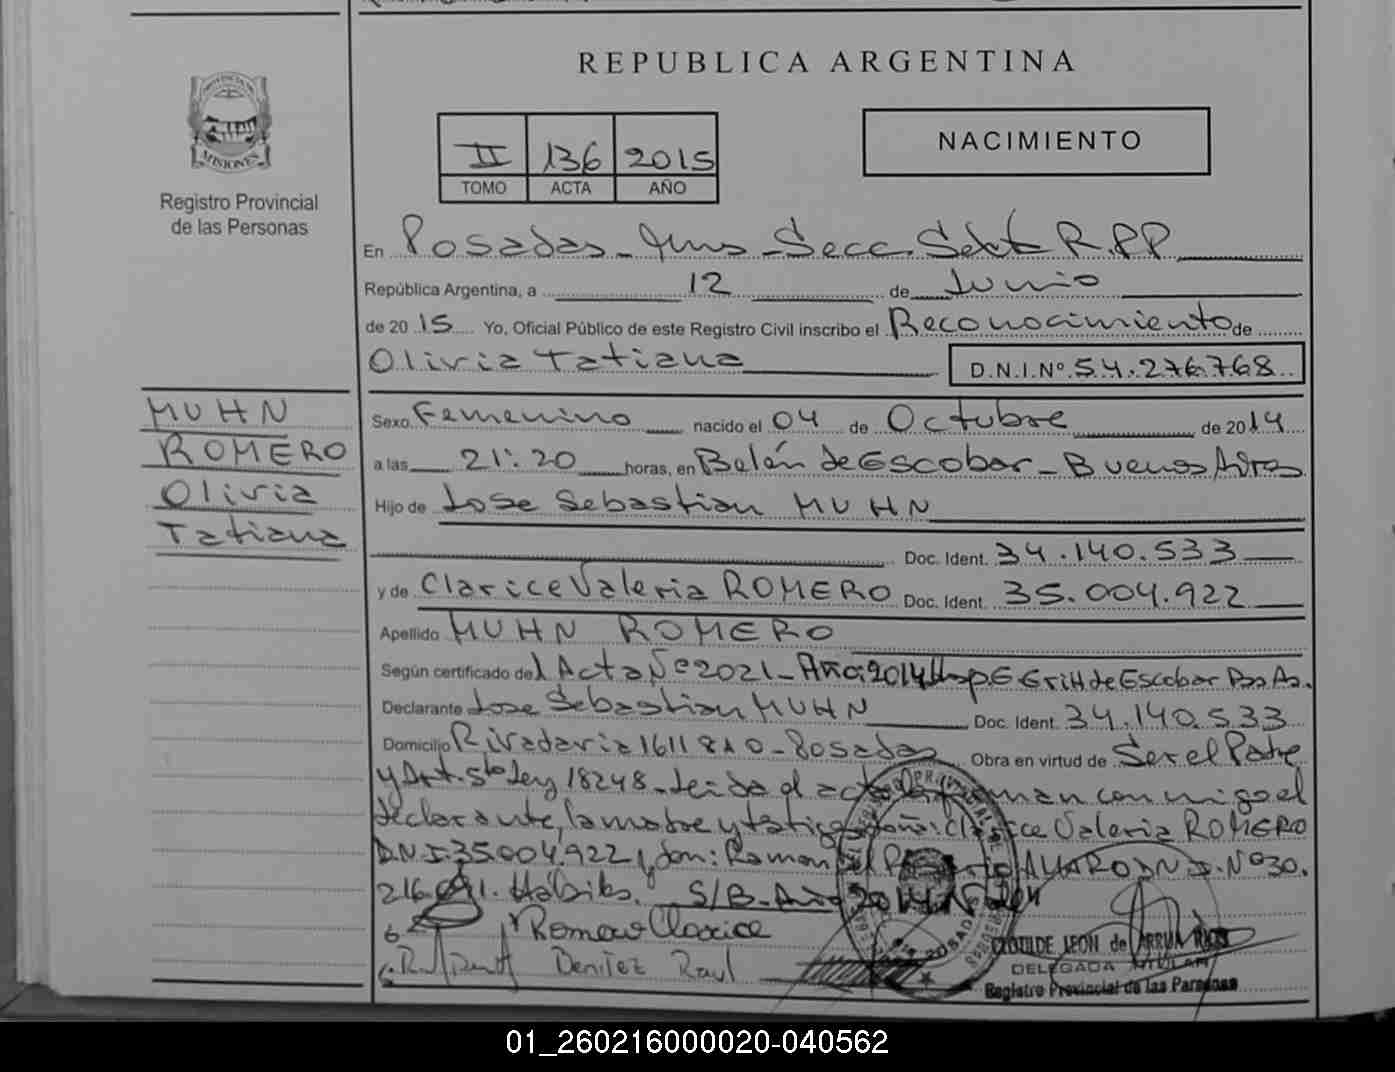 REPUBLICA ARGENTINA
PROVINCIA DE
MISIONES
Registro Provincial
de las Personas
II 136 2015
TOMO ACTA AÑO
NACIMIENTO
En Posadas - Mnes - Secc. Sexta R.P.P
República Argentina, a 12 de Junio
de 2015 Yo, Oficial Público de este Registro Civil inscribo el Reconocimiento de
Olivia Tatiana D.N.I.Nº 54.276.768
MUHN
ROMERO
Olivia
Tatiana
Sexo Femenino nacido el 04 de Octubre de 2014
a las 21:20 horas, en Belén de Escobar - Buenos Aires
Hijo de Jose Sebastian MUHN
Doc. Ident. 34.140.533
y de Clarice Valeria ROMERO Doc. Ident. 35.004.922
Apellido MUHN ROMERO
Según certificado del Acta Nº 2021 - Año: 2014 Hosp. E Erill de Escobar Bs As.
Declarante Jose Sebastian MUHN Doc. Ident. 34.140.533
Domicilio Rivadavia 1611 - Posadas Obra en virtud de Ser el Padre
y Art. 5to Ley 18248 - Leida el acta la firman conmigo el
declarante, la madre y testigos doña: Clarice Valeria ROMERO
D.N.I. 35.004.922 y don: Ramon D.N.I. Nº 30.
216. Habiles. S/B - Año 2014
Romero Clarice
Benitez Raul
CLOTILDE LEON de ARRUA
DELEGADA TITULAR
Registro Provincial de las Personas
01_260216000020-040562